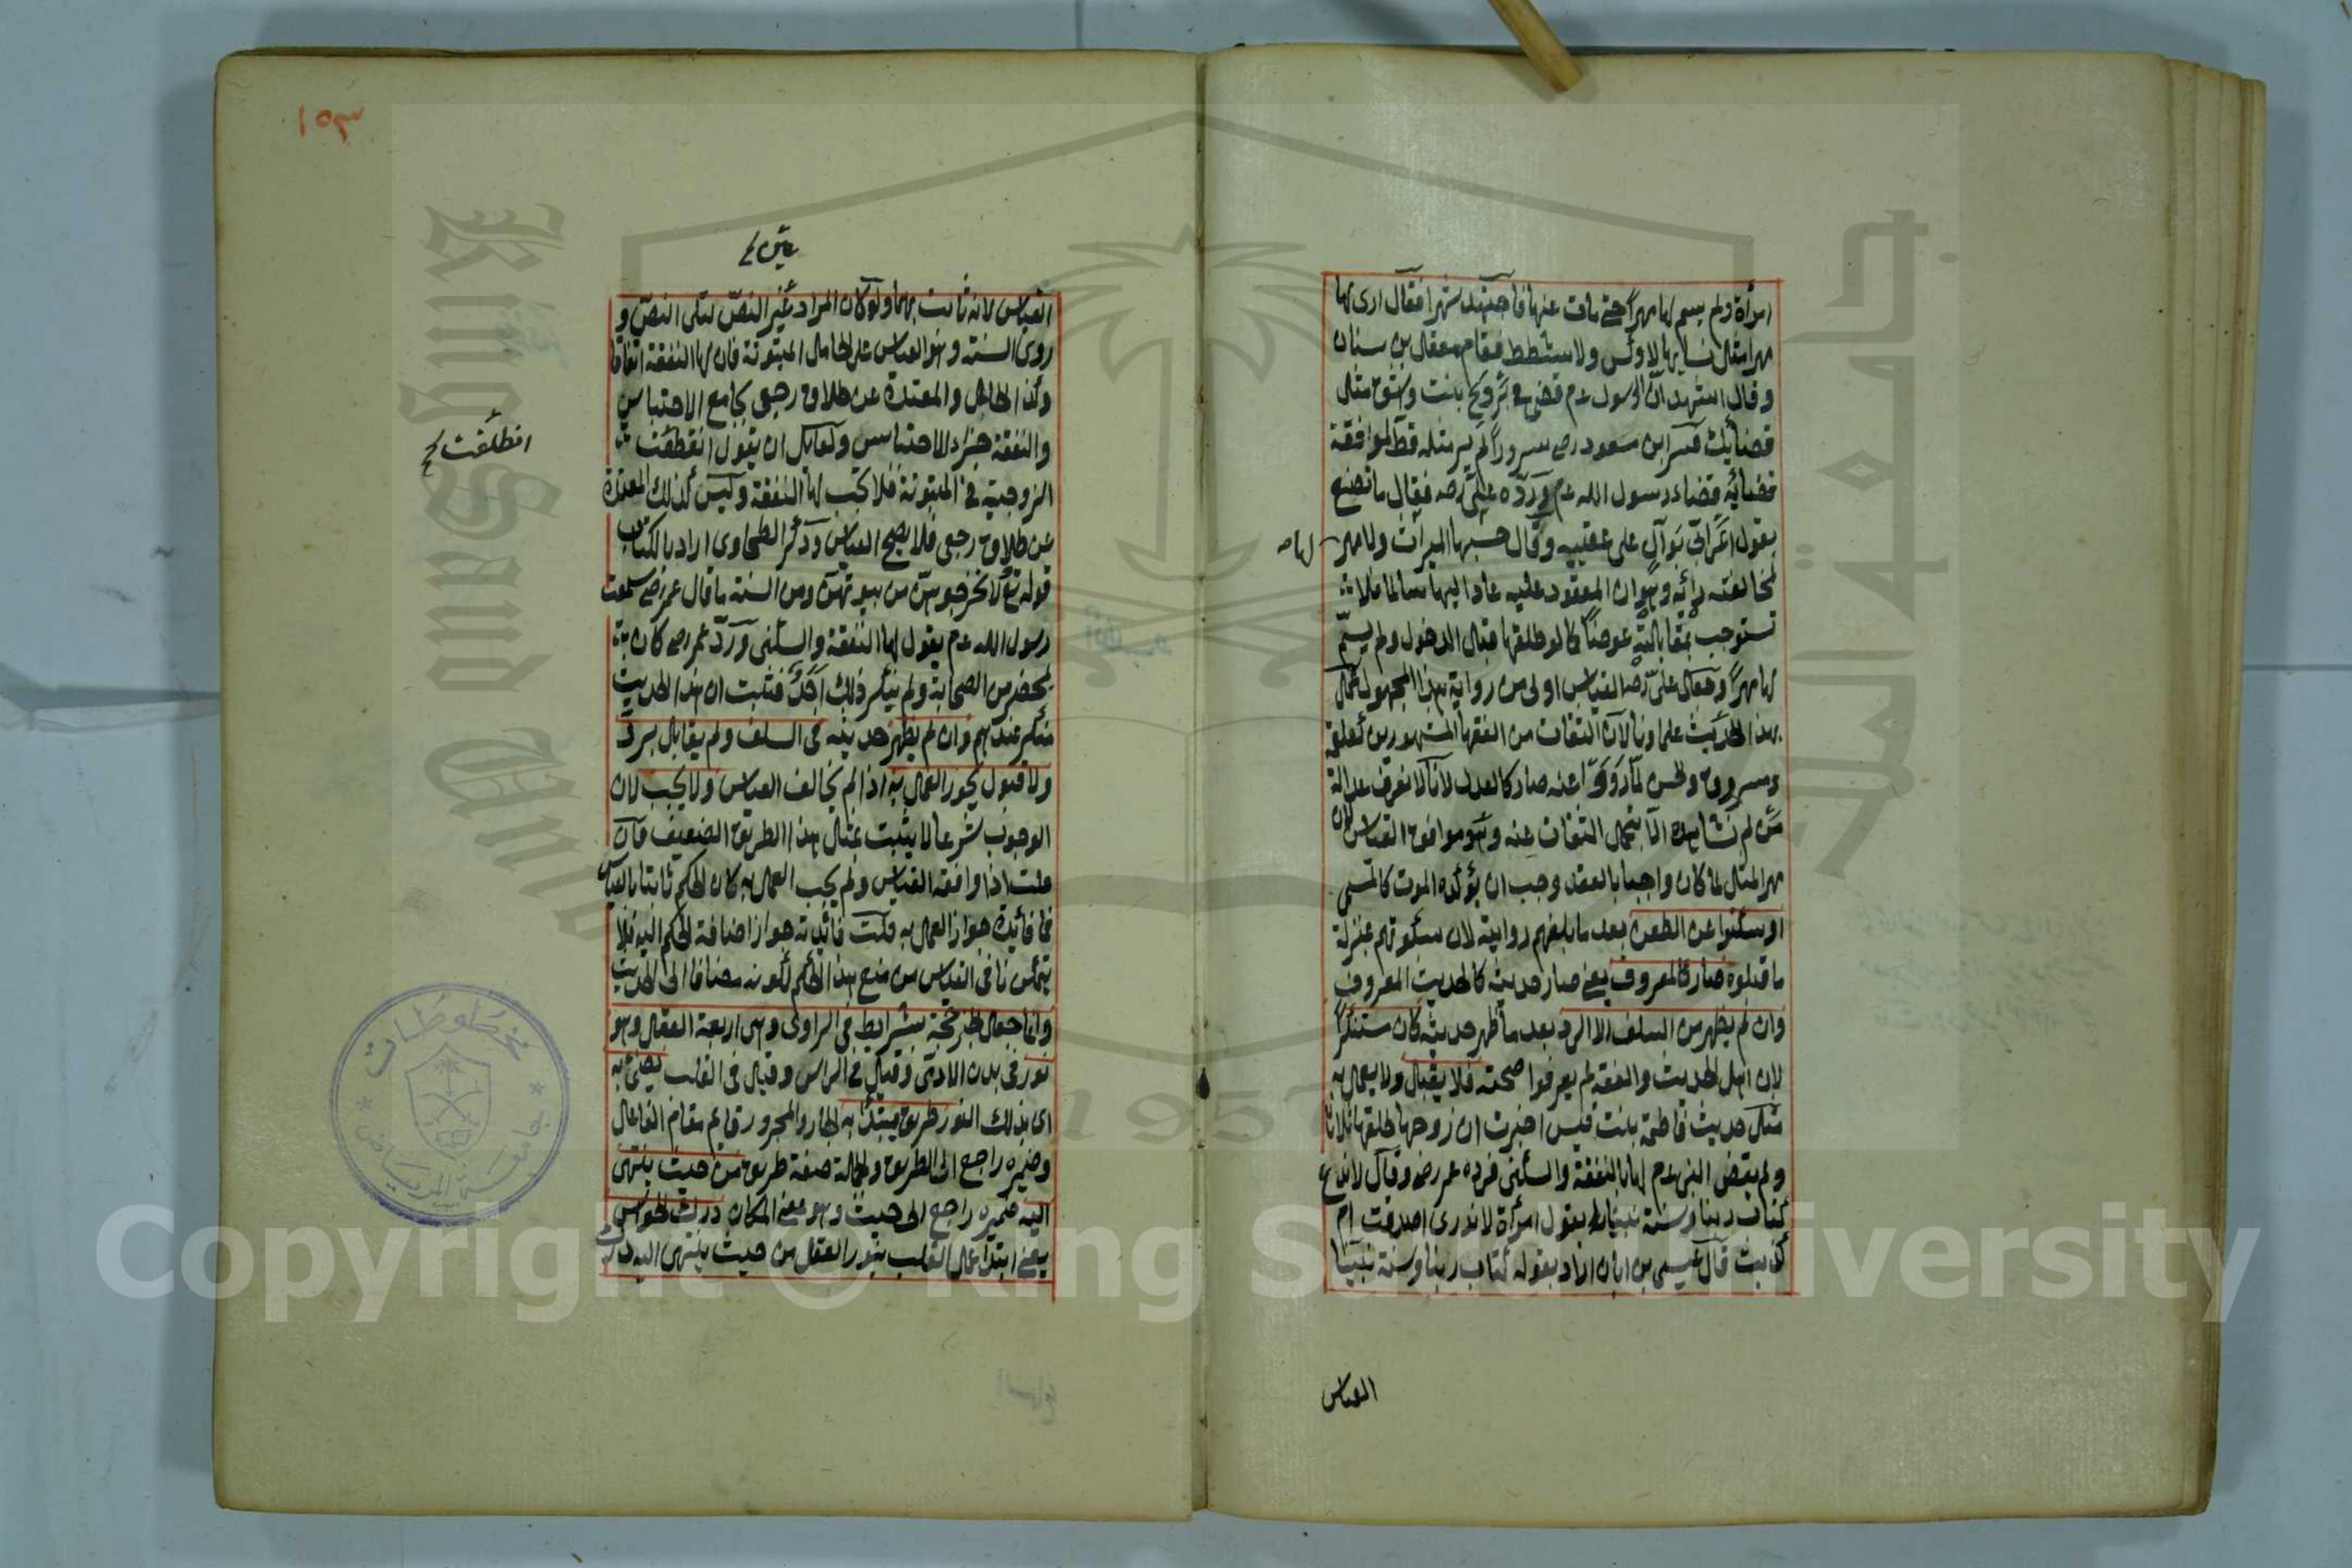 امرأة ولم يسم لها مهرا حتى مات عنها فاجتهد شهرا فقال ارى لها
مهر مثل نسايها لا وكس ولا شطط فقام معقل بن سنان
وقال اشهد ان الرسول عم قضى في تزويج بنت واشق مثل
قضائك فسر ابن مسعود رض سرورا لم ير مثله قط لموافقة
قضائه قضاء رسول الله عم ورده علي رضه فقال ما نصنع
بقول اعرابي بوال على عقبيه وقال حسبها الميراث ولا مهر
لها صـ
لمخالفته رأئه وهو ان المعقود عليه عاد اليها سالما فلا
تستوجب بمقابلته عوضا كما لو طلقها قبل الدخول ولم يسم
لها مهرا وجعل علي رضه القياس اولى من رواية هذا المجهول عمل
بهذا الحديث علماونا لان الثقات من الفقها المشهورين كعلقمة
ومسروق والحسن لما رووا عنه صار كالعدل لانا لا نعرف عدالة
من لم نشاهده الا بنقل الثقات عنه وهو موافق القياس لان
مهر المثل لما كان واجبا بالعقد وجب ان يؤكده الموت كالمسمى
او سكتوا عن الطعن بعد ما بلغهم روايته لان سكوتهم بمنزلة
ما قبلوه صار كالمعروف يعنى صار حديثه كالحديث المعروف
وان لم يظهر من السلف الا الرد بعد ما ظهر حديثه كان مستنكرا
لان اهل الحديث والفقه لم يعرفوا صحته فلا يقبل ولا يعمل به
مثل حديث فاطمة بنت قيس اخبرت ان زوجها طلقها ثلاثا
ولم يقض النبى عم لها بالنفقة والسكنى فرده عمر رض وقال لا ندع
كتاب ربنا وسنة نبينا بقول امرأة لا ندرى اصدقت ام
كذبت قال عيسى بن ابان اراد بقوله كتاب ربنا وسنة نبينا
القياس
١٥٣
القياس لانه ثابت بهما ولو كان المراد عين النص لتلى النص و
روى السنة وهو القياس على الحامل المبتوتة فان لها النفقة اتفاقا
وكذا الحامل والمعتدة عن طلاق رجعى بجامع الاحتباس
والنفقة جزاء الاحتباس ولقايل ان يقول انقطعت
انطلقت
الزوجية فى المبتوتة فلا تجب لها النفقة وليس كذلك المعتدة
عن طلاق رجعى فلا يصح القياس وذكر الطحاوى اراد بالكتاب
قوله تع لا تخرجوهن من بيوتهن ومن السنة ما قال عمر رض سمعت
رسول الله عم يقول لها النفقة والسكنى ورد عمر رض كان
بمحضر من الصحابة ولم ينكر ذلك احد فثبت ان هذا الحديث
منكر عندهم وان لم يظهر حديثه فى السلف ولم يقابل برد
ولا قبول يجوز العمل به اذا لم يخالف القياس ولا يجب لان
الوجوب شرعا لا يثبت بمثل هذا الطريق الضعيف فان
قلت اذا وافقه القياس ولم يجب العمل به كان الحكم ثابتا بالقياس
فما فائدة جواز العمل به قلت فائدته جواز اضافة الحكم اليه فلا
يتمكن نافى القياس من منع هذا الحكم لكونه مضافا الى الحديث
وانما جعل الخبر حجة بشرايط فى الراوى وهى اربعة العقل وهو
نور فى بدن الادمى وقيل فى الراس وقيل فى القلب يضئ به
اى بذلك النور طريق يبتدأ به الجار والمجرور قايم مقام الفاعل
وضميره راجع الى الطريق والجملة صفة طريق من حيث ينتهى
اليه ضميره راجع الى حيث وهو بمعنى المكان درك الحواس
يعنى ابتدأ عمل القلب بنور العقل من حيث ينتهى اليه درك
مخطوطات
جامعة الرياض
King Saud University
جامعة الملك
1957
Copyright © King Saud University